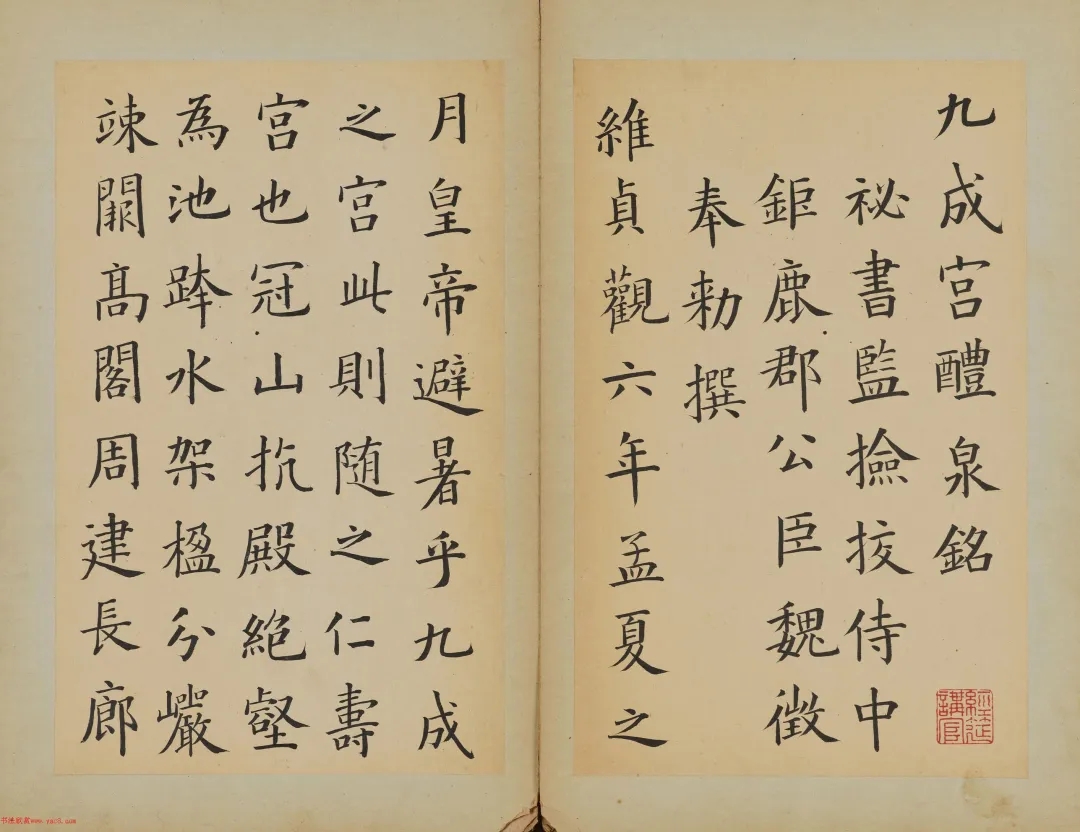 九成宮醴泉銘
祕書監撿挍侍中
鉅鹿郡公臣魏徵
奉勑撰
維貞觀六年孟夏之
月皇帝避暑乎九成
之宮此則随之仁壽
宮也冠山抗殿絶壑
為池跨水架楹分巖
竦闕髙閣周建長廊
經筵講官
书法欣赏www.yac8.com